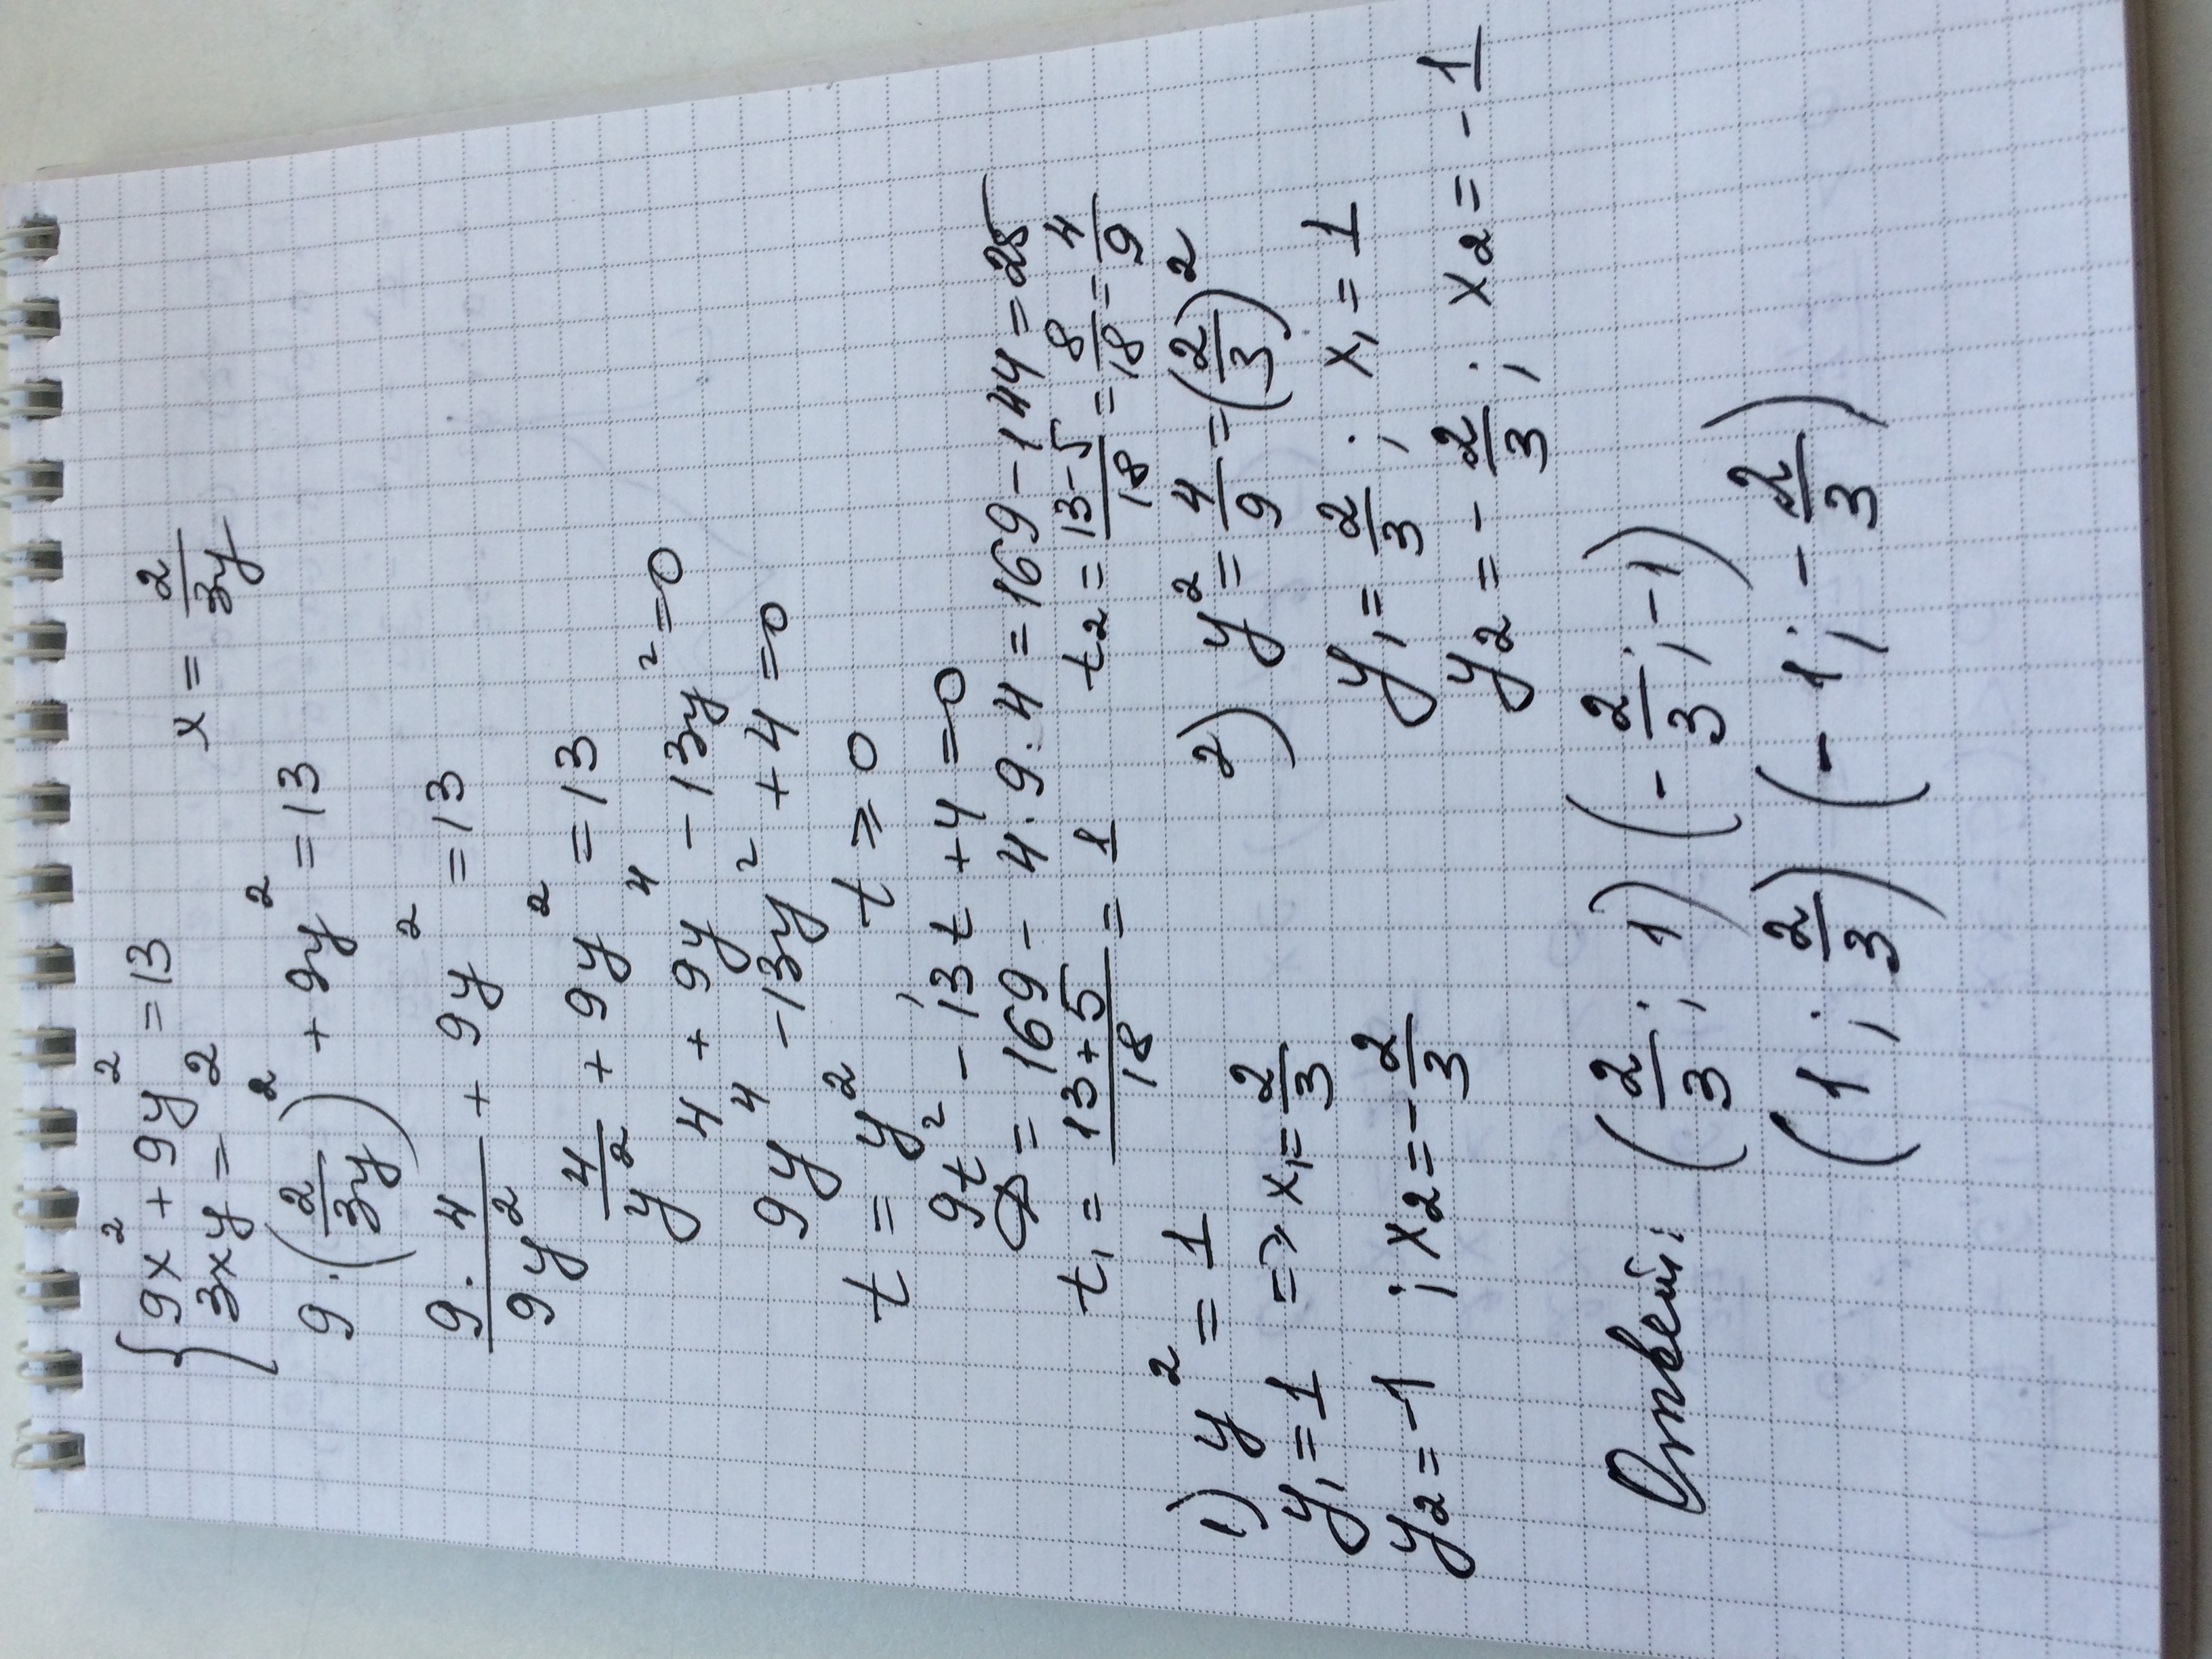 { 9x² + 9y² = 13
3xy = 2    x = 2/3y
9·(2/3y)² + 9y² = 13
9·4/9y² + 9y² = 13
4/y² + 9y² = 13
4 + 9y⁴ - 13y² = 0
9y⁴ - 13y² + 4 = 0
t = y², t ⩾ 0
9t² - 13t + 4 = 0
D = 169 - 4·9·4 = 169 - 144 = 25
t₁ = 13+5/18 = 1    t₂ = 13-5/18 = 8/18 = 4/9
1) y² = 1    2) y² = 4/9 = (2/3)²
y₁ = 1 => x₁ = 2/3    y₁ = 2/3; x₁ = 1
y₂ = -1; x₂ = -2/3    y₂ = -2/3; x₂ = -1
Ответ: (2/3; 1) (-2/3; -1)
(1; 2/3) (-1; -2/3)